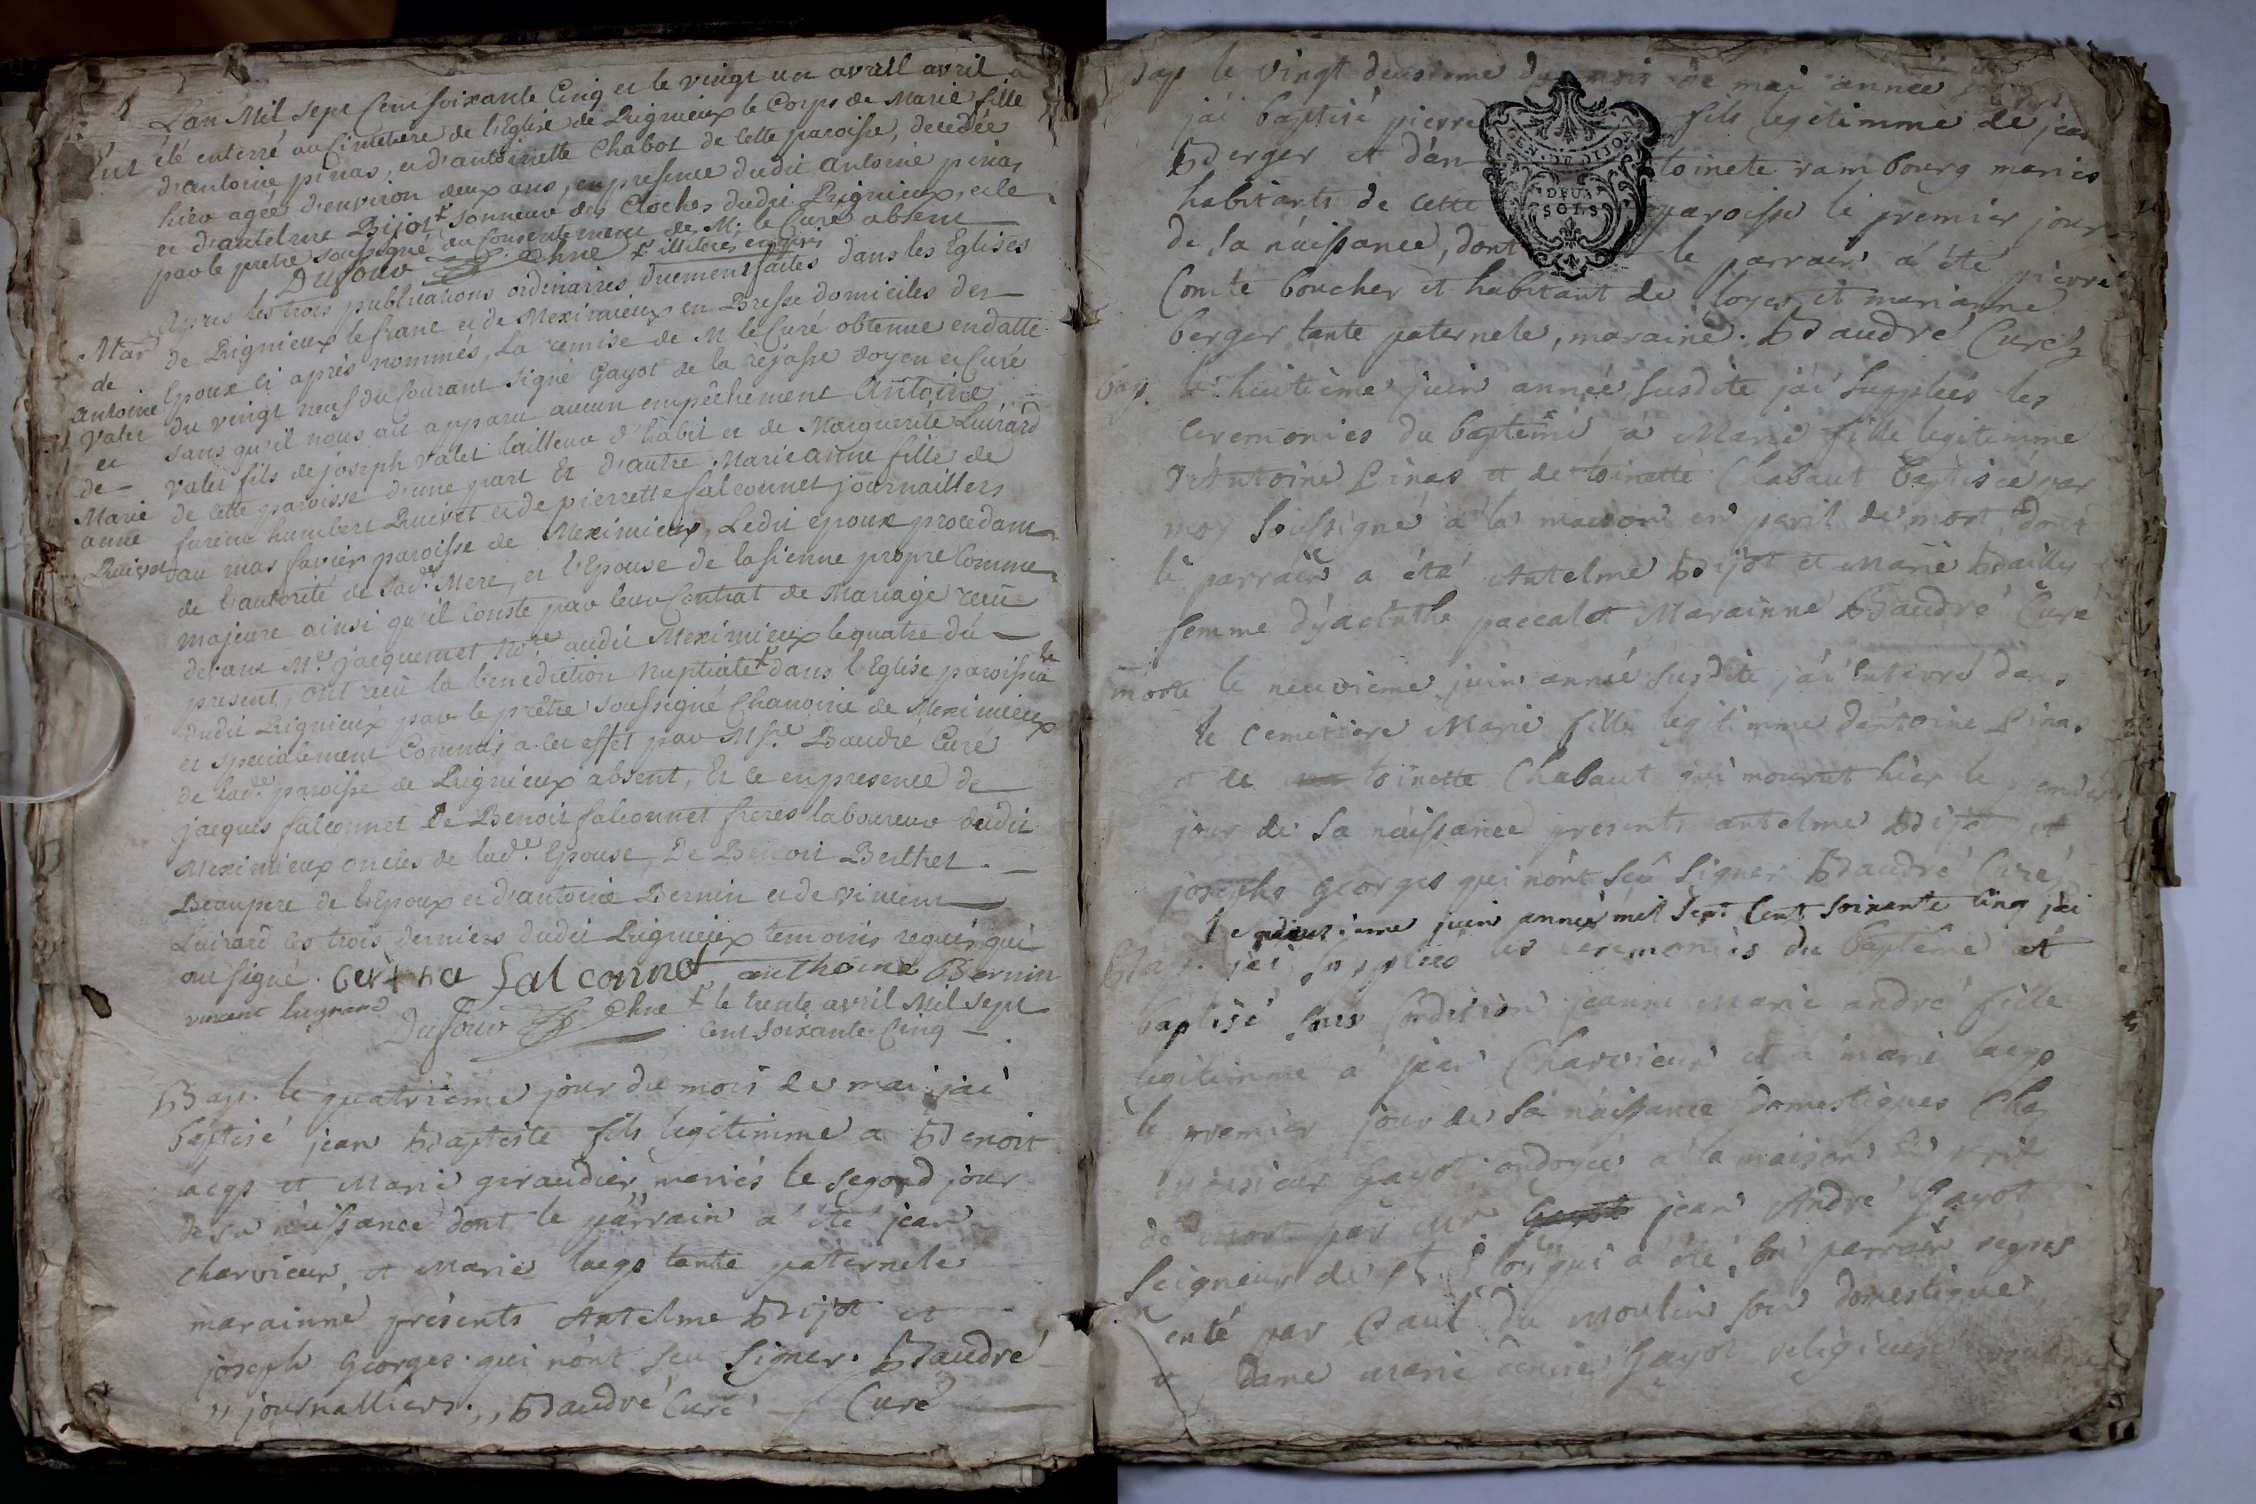 L'an Mil sept Cent soixante Cinq et le vingt un avrill avril a
été enterré au Cimetiere de l'Eglise de Rignieux le Corps de Marie fille
d'antoine pinas, et d'antoinette Chabot de Cette paroisse, decedée
hier agée d'environ deux ans, en presence dudit antoine pinas
et d'antelme Bijot sonneur des Cloches dudit Rignieux, et le
par le pretre soussigné du Consentement de Mr le Curé absent
Dufour Chne illiteres enquis
Apres les trois publications ordinaires duement faites dans les Eglises
de Rignieux le franc et de Meximieux en Bresse domiciles des
Epoux Ci après nommés, La remise de M le Curé obtenue en datte
du vingt neuf du Courant signé Gayot de la rejasse doyen et Curé
sans qu'il nous ait apparu aucun empêchement Antoine
Valet fils de joseph Valet tailleur d'habit et de Marguerite Luirard
de Cette paroisse d'une part Et d'autre Marie anne fille de
humbert Ruivet et de pierrette falconnet journailliers
au mas favier paroisse de Meximieux, Ledit epoux procedant
de l'autorité de sad.e Mere, et l'Epouse de la sienne propre Comme
majeure ainsi qu'il Conste par leur Contrat de Mariage reçu
devant Me jacquemet No.re audit Meximieux le quatre du
present, ont reçu la benediction Nuptiale dans l'Eglise paroissia le
dudit Rignieux par le prêtre soussigné Chanoine de Meximieux
et specialement Commis a cet effet par Msre Baudre Curé
de lad.e paroisse de Rignieux absent, Et ce en presence de
jacques falconnet De Benoit falconnet freres laboureur dudit
Meximieux oncles de lad.e Epouse, De Benoit Berthet
Beaupere de l'Epoux et d'antoine Bernin et de Vincent
Luirard les trois derniers dudit Rignieux temoins requis qui
ont signé. falconnet anthoine Bernin
vincent
Dufour Chne le trente avril Mil sept
Cent soixante Cinq
Mar
de
Antoine
Valet
et
de
Marie
anne
Ruivet
Bap. le quatrième jour du mois de mai jai
baptisé jean Baptiste fils legitimme a Benoit
laegs et Marie giraudier mariés le segond jour
de sa naissance dont le parrain a été jean
charvieux et Marie laegs tante paternele
marainne présents Antelme Bijot et
joseph Georges qui nônt seu signer. Baudré
journalliers. Baudré Curé Curé
Bap le vingt deuxieme du mois de mai année
jai baptisé pierre fils legitimme de jean
Berger et d'an toinete rambourg mariés
habitants de cette paroisse le premier jour
de sa naissance, dont le parrain a été pierre
Comte boucher et habitant de loyes et marianne
berger tante paternele, maraine. Baudré Curé
bap. le huitième juin année susdite jai supplées les
Ceremonies du baptême à Marie fille legitimme
d'Antoine Pinas et de toinette Chabaut baptisée par
moy soussigné à la maison en peril de mort dont
le parrain a été Antelme Bijot et Marie Bailly
femme d'yacinthe paccalet Marainne Baudré Curé
morte le neuvième juin année susdite jai enterré dans
le Cemetiere Marie fille legitimme d'antoine Pinas
et de toinette Chabaut qui mourut hier le
jour de sa naissance presents antelme Bijot et
josephs Georges qui nônt seû signer Baudré Curé
le juin année mil sept Cent soixante Cinq jai
Bap. jai supplées les ceremonies du baptême et
baptisé sous Condition jeanne Marie andré fille
legitimme a jean Charvieux et a marie laegs
le premier jour de sa naissance domestiques Chez
monsieur Gayot ondoyée à la maison en peril
de mort par Mr jean André Gayot
Seigneur de qui a été parrain repres
enté par Paul du moulin son domestique
et Dame Marie Gayot religieuse